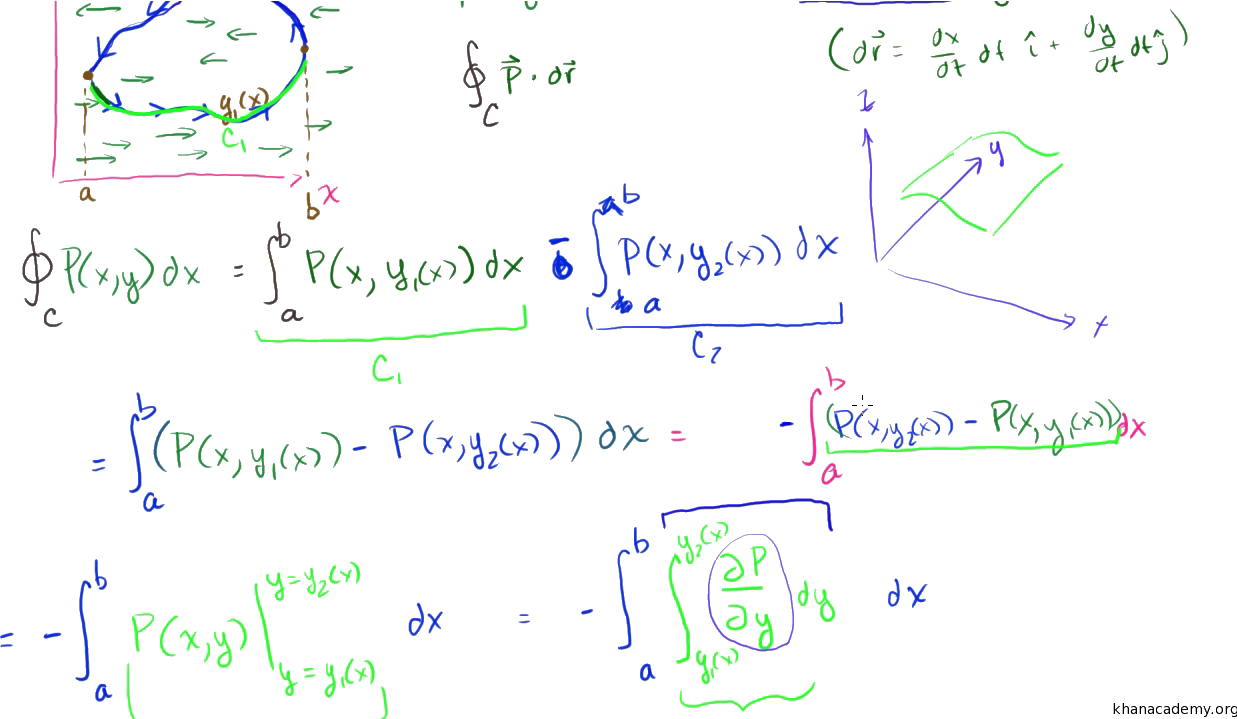 (dr⃗ = dx/dt dt î + dy/dt dt ĵ)
∮_C P⃗ · dr⃗
y₁(x)
C₁
a
b
x
z
y
x
∮_C P(x,y) dx = ∫_a^b P(x, y₁(x)) dx - ∫_a^b P(x, y₂(x)) dx
C₁
C₂
= ∫_a^b (P(x, y₁(x)) - P(x, y₂(x))) dx = - ∫_a^b (P(x, y₂(x)) - P(x, y₁(x))) dx
= - ∫_a^b P(x,y) |_{y = y₁(x)}^{y = y₂(x)} dx = - ∫_a^b ∫_{y₁(x)}^{y₂(x)} ∂P/∂y dy dx
khanacademy.org